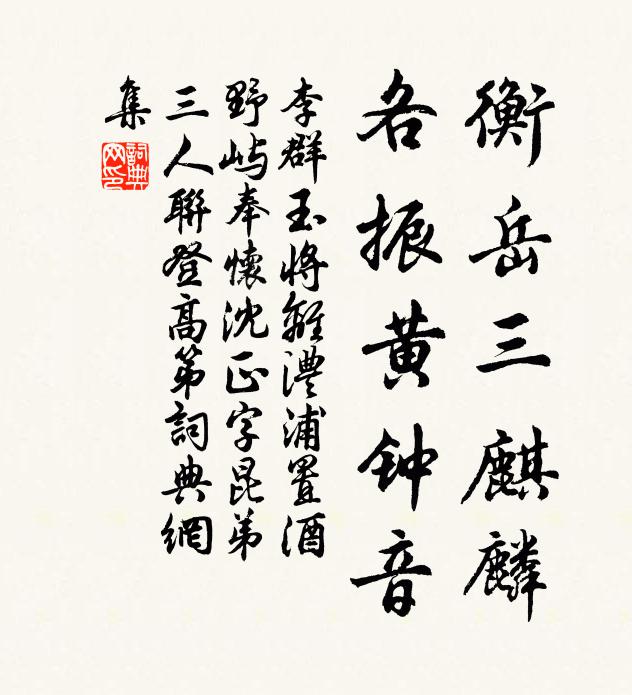 衡岳三麒麟
各振黄钟音
李群玉將離澧浦置酒
野嶼奉懷沈正字昆弟
三人聯登高第詞典網
集
詞典
网印